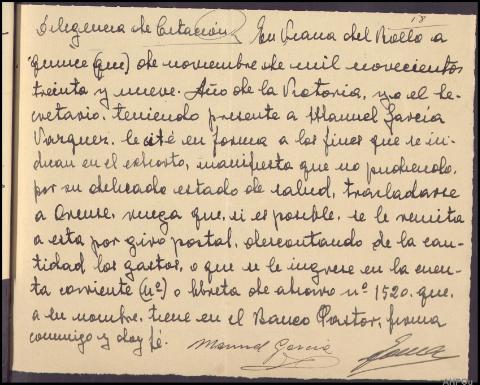 18
Diligencia de Citación / En Viana del Bollo a
quince (que) de noviembre de mil novecientos
treinta y nueve. Año de la Victoria, yo el Se-
cretario, teniendo presente a Manuel García
Vazquez, le cité en forma a los fines que se in-
dican en el exhorto, manifiesta que no pudiendo,
por su delicado estado de salud, trasladarse
a Orense, ruega que, si es posible, se le remita
a esta por giro postal, descontando de la can-
tidad los gastos, o que se le ingrese en la cuen-
ta corriente (nº) o libreta de ahorro nº 1520. que,
a su nombre, tiene en el Banco Pastor, firma
conmigo y doy fé.
Manuel García